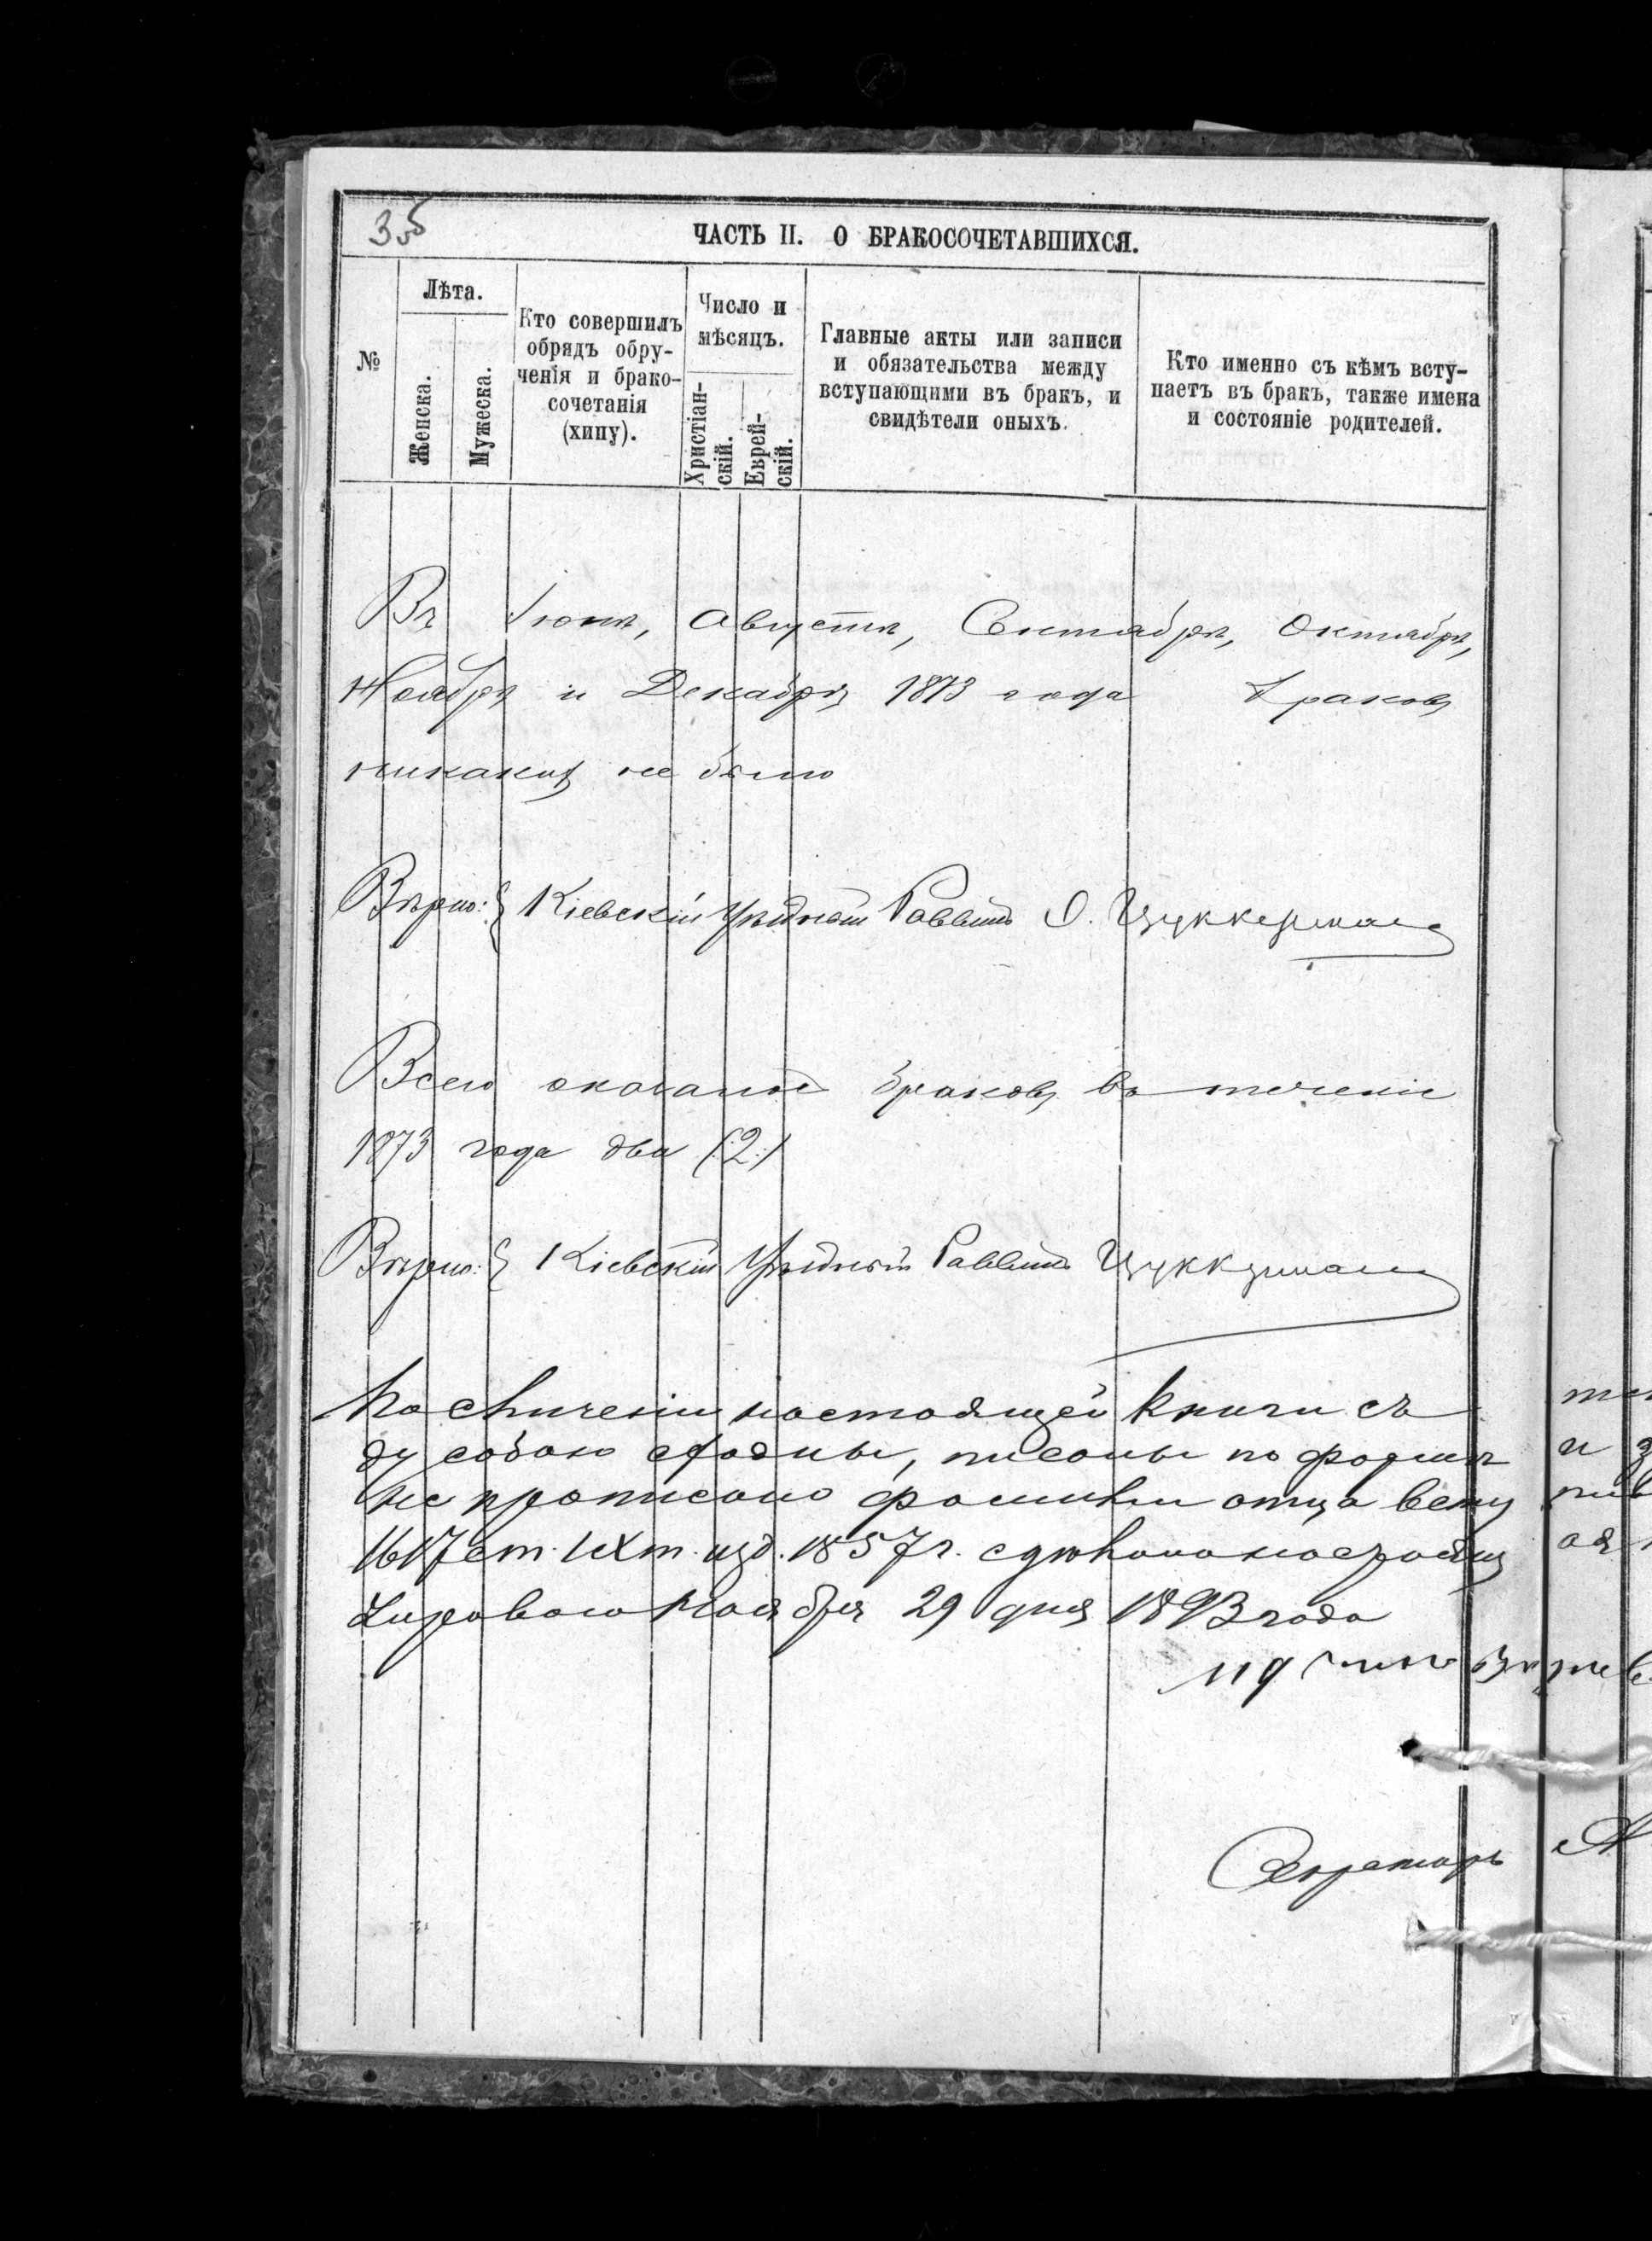 35
ЧАСТЬ II. О БРАКОСОЧЕТАВШИХСЯ.
№
Лѣта.
Женска.
Мужеска.
Кто совершилъ
обрядъ обру-
ченія и брако-
сочетанія
(хипу).
Число и
мѣсяцъ.
Христіан-
скій.
Еврей-
скій.
Главные акты или записи
и обязательства между
вступающими въ бракъ, и
свидѣтели оныхъ.
Кто именно съ кѣмъ всту-
паетъ въ бракъ, также имена
и состояніе родителей.
Въ Августѣ, Сентябрѣ, Октябрѣ,
Ноябрѣ и Декабрѣ 1873 года браковъ
никакихъ не было
Вѣрно: Кіевскій Уѣздный Раввинъ О. Цуккерманъ
Всего оказалось браковъ въ теченіе
1873 года два (2)
Вѣрно: Кіевскій Уѣздный Раввинъ Цуккерманъ
По сличеніи настоящей книги съ
ду собою сходны, писаны по формѣ и
не прописано фамиліи отца
1617 ст. IX т. изд. 1857 г.
Ноября 29 дня года
Секретарь